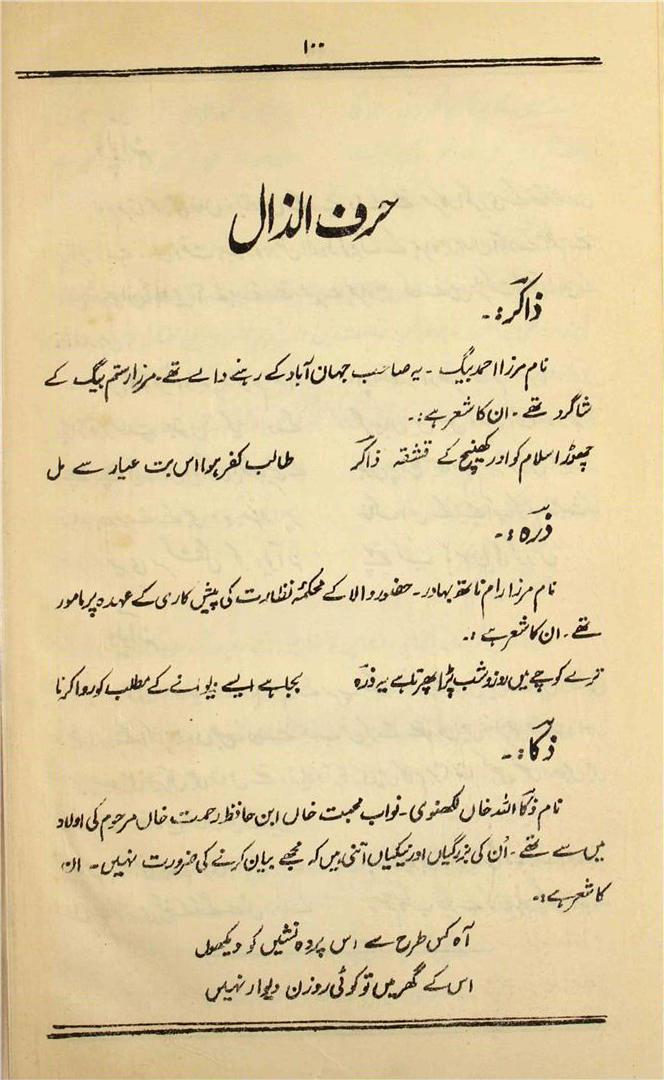 ۱۰۰
حرف الذال
ذاکر:۔
نام مرزا احمد بیگ ۔ یہ صاحب جہان آباد کے رہنے والے تھے۔ مرزا رستم بیگ کے
شاگرد تھے۔ ان کا شعر ہے:۔
چھوڑ اسلام کو اور کھینچ کے قشقہ ذاکر طالب کفر ہوا اس بت عیار سے مل
ذرہ:۔
نام مرزا رام ناتھ بہادر۔ حضور والا کے محکمۂ نظارت کی پیش کاری کے عہدہ پر مامور
تھے۔ ان کا شعر ہے:۔
ترے کوچے میں روز و شب پڑا پھرتا ہے یہ ذرہ بجا ہے ایسے دیوانے کے مطلب کو روا کرنا
ذکا:۔
نام ذکا اللہ خاں لکھنوی۔ نواب محبت خاں ابن حافظ رحمت خاں مرحوم کی اولاد
میں سے تھے۔ اُن کی بزرگیاں اور نیکیاں اتنی ہیں کہ مجھے بیان کرنے کی ضرورت نہیں۔ ان
کا شعر ہے:۔
آہ کس طرح سے اس پردہ نشیں کو دیکھوں
اس کے گھر میں تو کوئی روزن دیوار نہیں